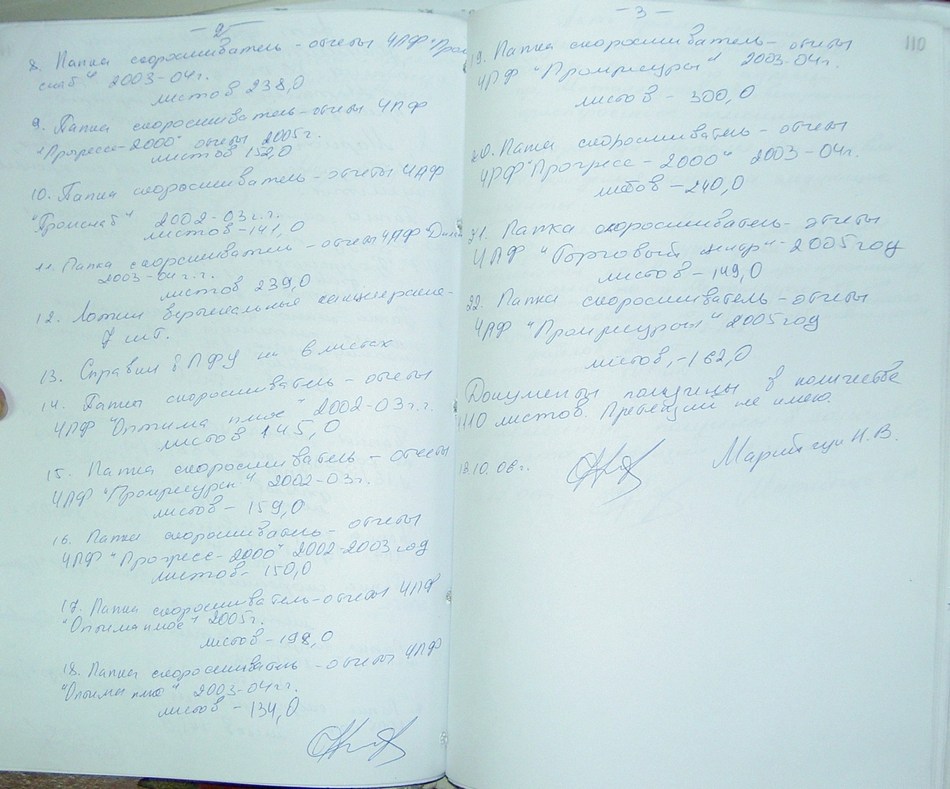 - 2 -
8. Папка скоросшиватель - отчеты ЧПФ "Пром
снаб" 2003-04г.
листов 238,0
9. Папка скоросшиватель - отчеты ЧПФ
"Прогресс-2000" отчеты 2005г.
листов 152,0
10. Папка скоросшиватель - отчеты ЧПФ
"Промснаб" 2002-03г.г.
листов - 141,0
11. Папка скоросшиватель - отчеты ЧПФ
2003-04г.г.
листов 239,0
12. Лотки вертикальные канцелярские -
7 шт.
13. Справки в ПФУ на 6 листах
14. Папка скоросшиватель - отчеты
ЧПФ "Оптима плюс" 2002-03г.г.
листов 145,0
15. Папка скоросшиватель - отчеты
ЧПФ "Промресурсы" 2002-03г.
листов - 159,0
16. Папка скоросшиватель - отчеты
ЧПФ "Прогресс-2000" 2002-2003 год
листов - 150,0
17. Папка скоросшиватель - отчеты ЧПФ
"Оптима плюс" 2005г.
листов - 198,0
18. Папка скоросшиватель - отчеты ЧПФ
"Оптима плюс" 2003-04г.г.
листов - 134,0
- 3 -
110
19. Папка скоросшиватель - отчеты
ЧПФ "Промресурсы" 2003-04г.
листов - 300,0
20. Папка скоросшиватель - отчеты
ЧПФ "Прогресс-2000" 2003-04г.
листов - 240,0
21. Папка скоросшиватель - отчеты
ЧПФ "Торговый мир" 2005 год
листов - 149,0
22. Папка скоросшиватель - отчеты
ЧПФ "Промресурсы" 2005 год
листов, - 162,0
Документы получены в количестве
листов. Претензий не имею.
10.06г.
Н.В.